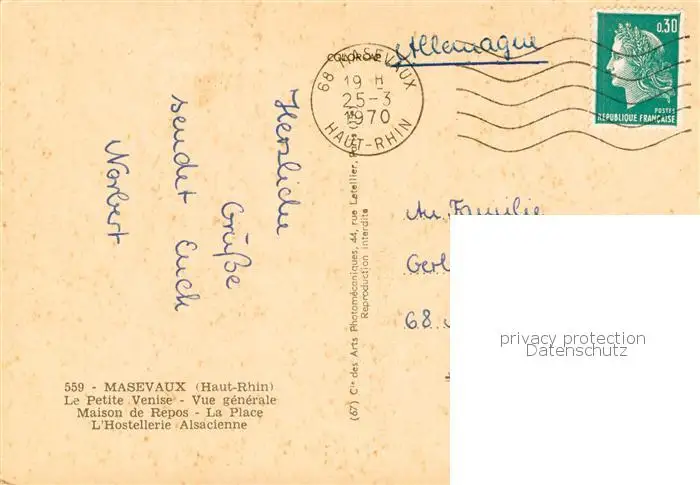 Allemagne
COLORCVE
68 MASEVAUX
19 H
25-3
1970
HAUT-RHIN
0,30
POSTES
REPUBLIQUE FRANÇAISE
Herzliche
Grüße
sendet Euch
Norbert
(67) Cie des Arts Photomécaniques, 44, rue Letellier, Paris
Reproduction interdite
An Familie
Gerl
68
privacy protection
Datenschutz
559 - MASEVAUX (Haut-Rhin)
Le Petite Venise - Vue générale
Maison de Repos - La Place
L'Hostellerie Alsacienne